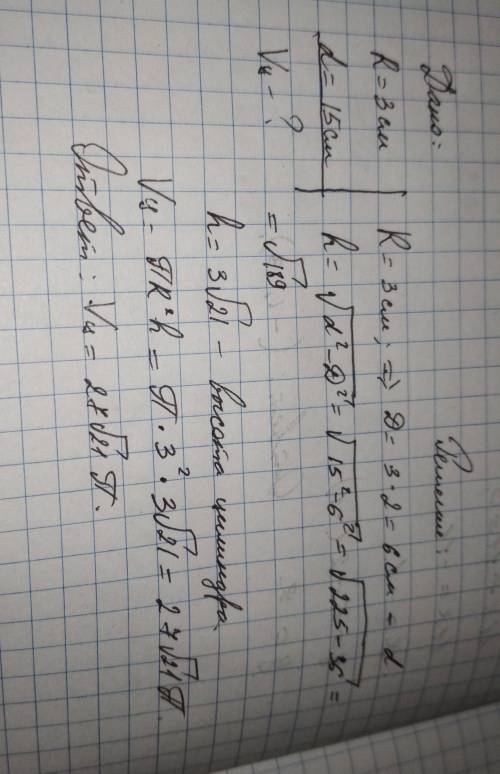 Дано:
R = 3 см
d = 15 см
Vц - ?
Решение:
R = 3 см, ⇒ D = 3·2 = 6 см - d
h = √d² - D² = √15² - 6² = √225 - 36 =
= √189
h = 3√21 - высота цилиндра.
Vц - ПR²h = П·3²·3√21 = 27√21 П.
Ответ: Vц = 27√21 П.